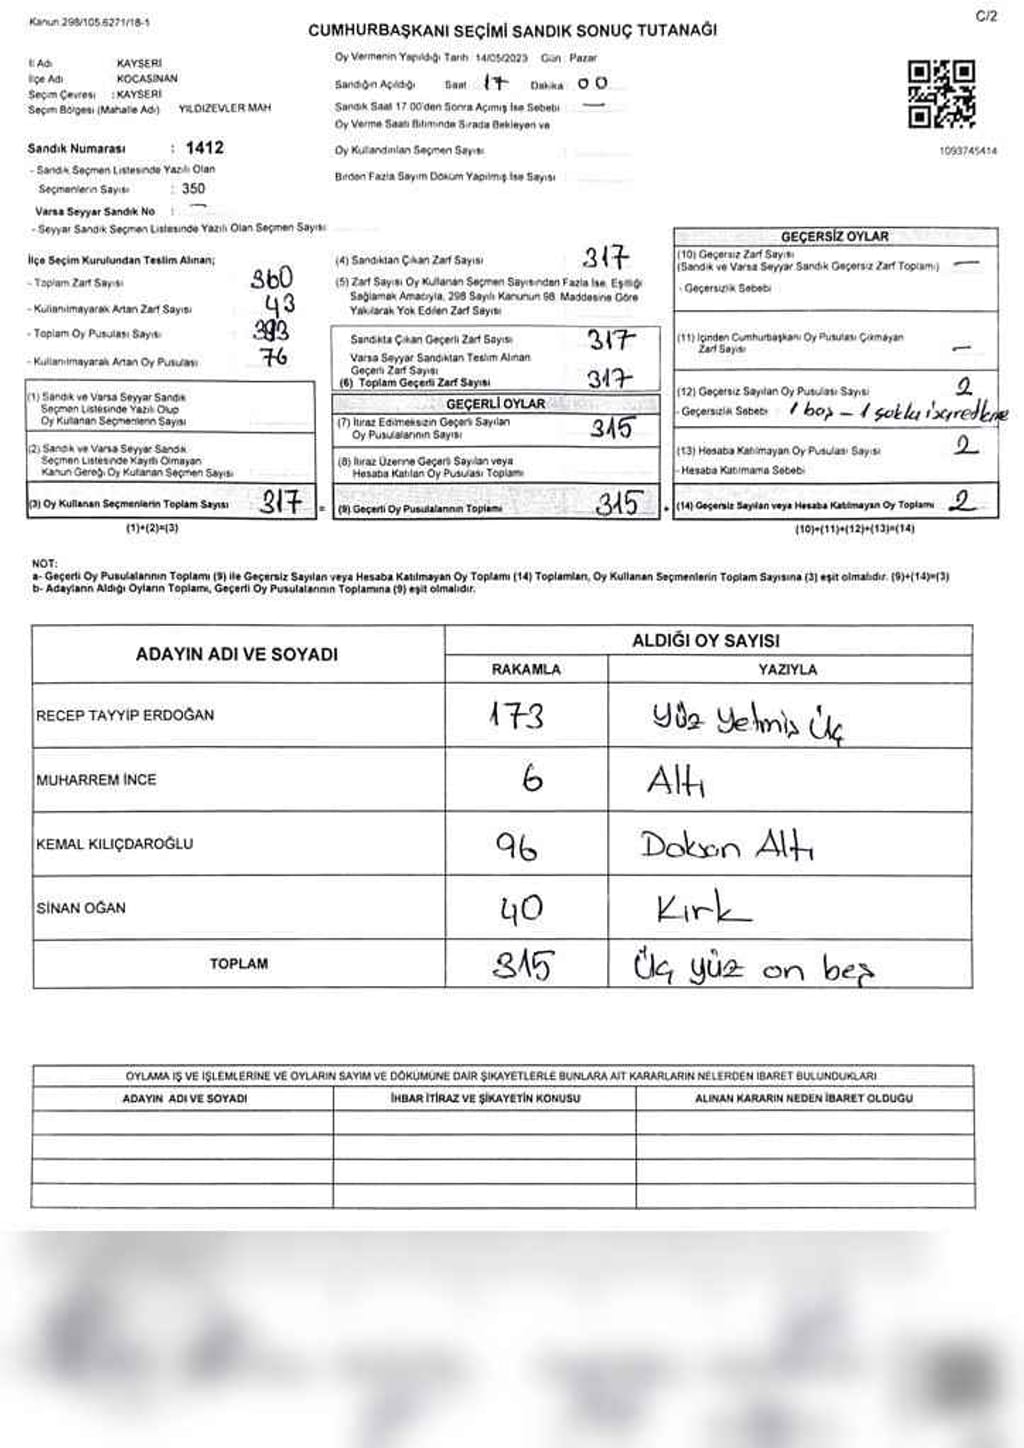 Kanun 298/105.6271/18-1
C/2
CUMHURBAŞKANI SEÇİMİ SANDIK SONUÇ TUTANAĞI
İl Adı KAYSERİ
İlçe Adı KOCASİNAN
Seçim Çevresi : KAYSERİ
Seçim Bölgesi (Mahalle Adı) YILDIZEVLER MAH
Sandık Numarası : 1412
- Sandık Seçmen Listesinde Yazılı Olan
Seçmenlerin Sayısı : 350
Varsa Seyyar Sandık No : —
- Seyyar Sandık Seçmen Listesinde Yazılı Olan Seçmen Sayısı
Oy Vermenin Yapıldığı Tarih 14/05/2023 Gün : Pazar
Sandığın Açıldığı Saat 17 Dakika 00
Sandık Saat 17.00'den Sonra Açılmış İse Sebebi : —
Oy Verme Saati Bitiminde Sırada Bekleyen ve
Oy Kullandırılan Seçmen Sayısı :
Birden Fazla Sayım Döküm Yapılmış İse Sayısı :
1093745414
İlçe Seçim Kurulundan Teslim Alınan;
- Toplam Zarf Sayısı 360
- Kullanılmayarak Artan Zarf Sayısı 43
- Toplam Oy Pusulası Sayısı 393
- Kullanılmayarak Artan Oy Pusulası 76
(1) Sandık ve Varsa Seyyar Sandık
Seçmen Listesinde Yazılı Olup
Oy Kullanan Seçmenlerin Sayısı
(2) Sandık ve Varsa Seyyar Sandık
Seçmen Listesinde Kayıtlı Olmayan
Kanun Gereği Oy Kullanan Seçmen Sayısı
(3) Oy Kullanan Seçmenlerin Toplam Sayısı 317 =
(1)+(2)=(3)
(4) Sandıktan Çıkan Zarf Sayısı 317
(5) Zarf Sayısı Oy Kullanan Seçmen Sayısından Fazla İse, Eşitliği
Sağlamak Amacıyla, 298 Sayılı Kanunun 98. Maddesine Göre
Yakılarak Yok Edilen Zarf Sayısı
Sandıkta Çıkan Geçerli Zarf Sayısı 317
Varsa Seyyar Sandıktan Teslim Alınan
Geçerli Zarf Sayısı
(6) Toplam Geçerli Zarf Sayısı 317
GEÇERLİ OYLAR
(7) İtiraz Edilmeksizin Geçerli Sayılan
Oy Pusulalarının Sayısı 315
(8) İtiraz Üzerine Geçerli Sayılan veya
Hesaba Katılan Oy Pusulası Toplamı
(9) Geçerli Oy Pusulalarının Toplamı 315 +
GEÇERSİZ OYLAR
(10) Geçersiz Zarf Sayısı —
(Sandık ve Varsa Seyyar Sandık Geçersiz Zarf Toplamı)
- Geçersizlik Sebebi
(11) İçinden Cumhurbaşkanı Oy Pusulası Çıkmayan
Zarf Sayısı —
(12) Geçersiz Sayılan Oy Pusulası Sayısı 2
- Geçersizlik Sebebi 1 boş – 1
(13) Hesaba Katılmayan Oy Pusulası Sayısı 2
- Hesaba Katılmama Sebebi
(14) Geçersiz Sayılan veya Hesaba Katılmayan Oy Toplamı 2
(10)+(11)+(12)+(13)=(14)
NOT:
a- Geçerli Oy Pusulalarının Toplamı (9) ile Geçersiz Sayılan veya Hesaba Katılmayan Oy Toplamı (14) Toplamları, Oy Kullanan Seçmenlerin Toplam Sayısına (3) eşit olmalıdır. (9)+(14)=(3)
b- Adayların Aldığı Oyların Toplamı, Geçerli Oy Pusulalarının Toplamına (9) eşit olmalıdır.
ADAYIN ADI VE SOYADI ALDIĞI OY SAYISI
RAKAMLA YAZIYLA
RECEP TAYYİP ERDOĞAN 173 Yüz Yetmiş Üç
MUHARREM İNCE 6 Altı
KEMAL KILIÇDAROĞLU 96 Doksan Altı
SİNAN OĞAN 40 Kırk
TOPLAM 315 Üç yüz on beş
OYLAMA İŞ VE İŞLEMLERİNE VE OYLARIN SAYIM VE DÖKÜMÜNE DAİR ŞİKAYETLERLE BUNLARA AİT KARARLARIN NELERDEN İBARET BULUNDUKLARI
ADAYIN ADI VE SOYADI İHBAR İTİRAZ VE ŞİKAYETİN KONUSU ALINAN KARARIN NEDEN İBARET OLDUĞU